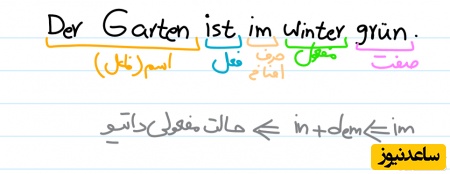 Der Garten ist im winter grün.
اسم (فاعل) فعل حرف اضافه مفعول صفت
im ⇒ in+dem ⇒ حالت مفعولی داتیو
ساعدنیوز